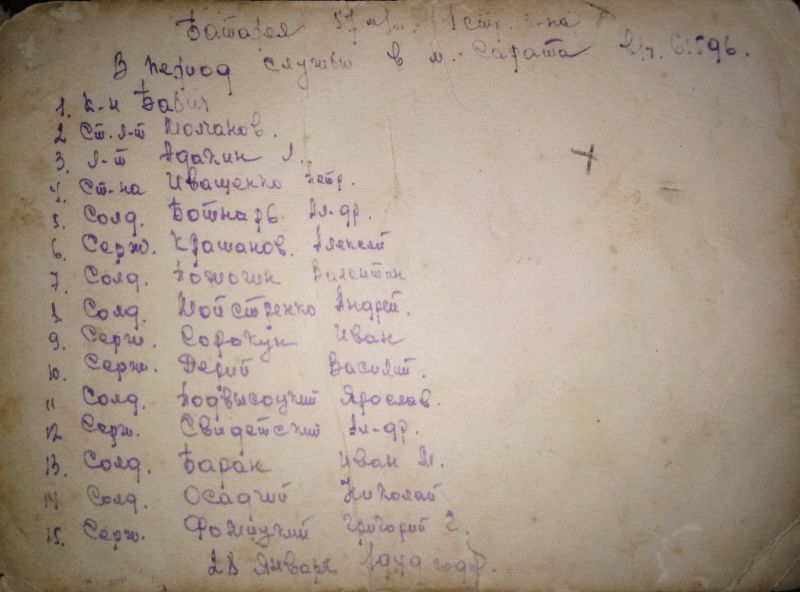 Батарея 57 мм. 1 стр. б-на
В период службы в м. Сарата в/ч.
1. к-н Бабич
2 Ст. л-т Молчанов.
3. л-т Адакин Л.
4. Ст-на Иващенко Петр.
5. Солд. Ботнарь Ал-др.
6. Серж. Крашанов. Алексей
7. Солд. Валентин
8 Солд. Мойстренко Андрей.
9. Серж. Сорокун Иван
10. Серж. Дерий Василий.
11 Солд. Подвысоцкий Ярослав.
12 Серж. Свидетский Ал-др.
13. Солд. Баран Иван М.
14 Солд. Осадчий Николай
15. Серж. Григорий Г.
28 Января года.